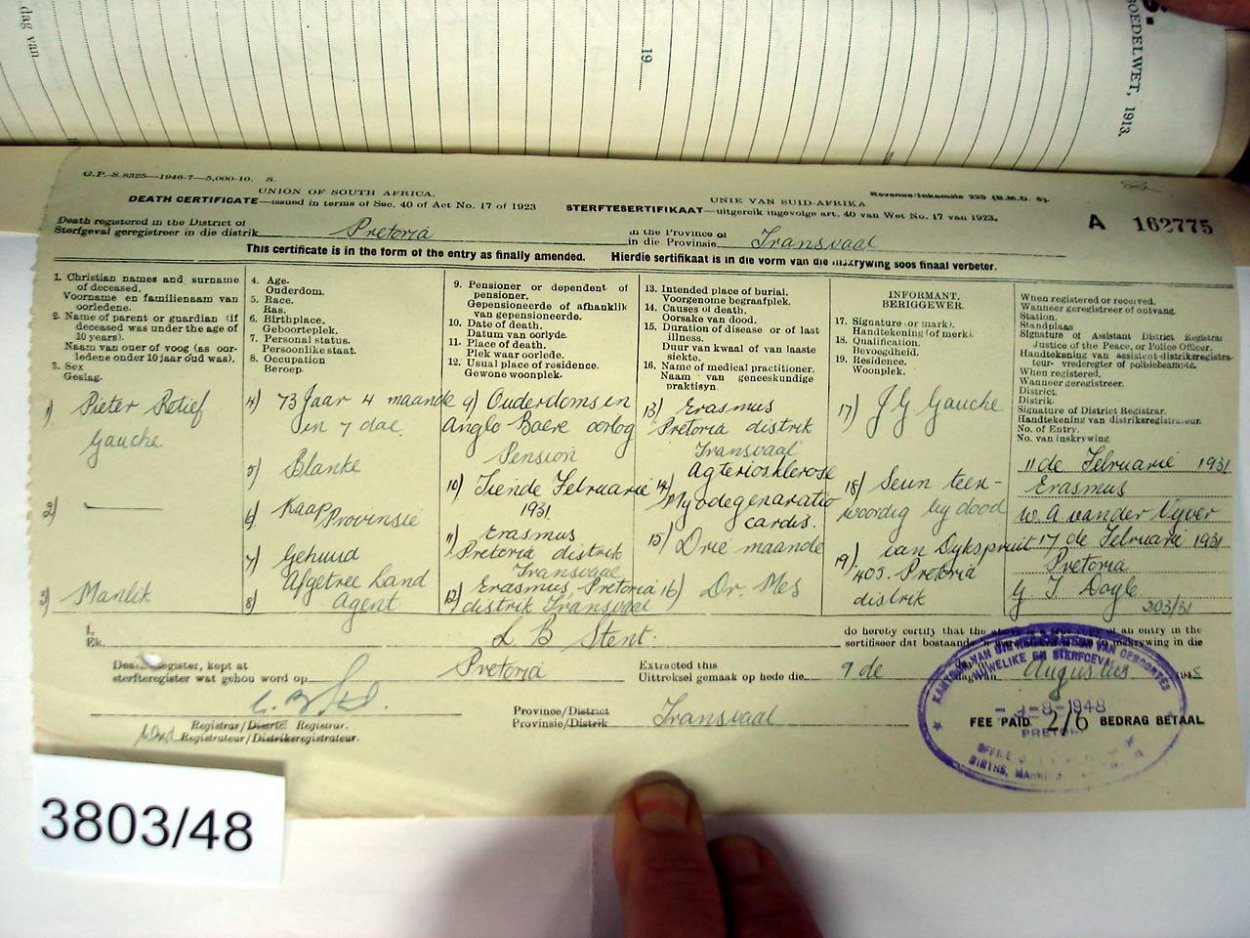 dag van
19
BOEDELWET, 1913.
G.P.-S.8325—1946-7—5,000-10. S.
UNION OF SOUTH AFRICA.
DEATH CERTIFICATE—issued in terms of Sec. 40 of Act No. 17 of 1923
UNIE VAN SUID-AFRIKA
STERFTESERTIFIKAAT—uitgereik ingevolge art. 40 van Wet No. 17 van 1923.
Revenue/Inkomste 229 (B.M.D. 6).
A 162775
Death registered in the District of
Sterfgeval geregistreer in die distrik Pretoria
in the Province of
in die Provinsie Transvaal
This certificate is in the form of the entry as finally amended. Hierdie sertifikaat is in die vorm van die inskrywing soos finaal verbeter.
1. Christian names and surname
of deceased.
Voorname en familienaam van
oorledene.
2. Name of parent or guardian (if
deceased was under the age of
10 years).
Naam van ouer of voog (as oor-
ledene onder 10 jaar oud was).
3. Sex
Geslag.
4. Age.
Ouderdom.
5. Race.
Ras.
6. Birthplace.
Geboorteplek.
7. Personal status.
Persoonlike staat.
8. Occupation
Beroep.
9. Pensioner or dependent of
pensioner.
Gepensioneerde of afhanklik
van gepensioneerde.
10. Date of death.
Datum van oorlyde.
11. Place of death.
Plek waar oorlede.
12. Usual place of residence.
Gewone woonplek.
13. Intended place of burial.
Voorgenome begraafplek.
14. Causes of death.
Oorsake van dood.
15. Duration of disease or of last
illness.
Duur van kwaal of van laaste
siekte.
16. Name of medical practitioner.
Naam van geneeskundige
praktisyn
INFORMANT.
BERIGGEWER.
17. Signature (or mark).
Handtekening (of merk).
18. Qualification.
Bevoegdheid.
19. Residence.
Woonplek.
When registered or received.
Wanneer geregistreer of ontvang.
Station.
Standplaas
Signature of Assistant District Registrar
Justice of the Peace, or Police Officer.
Handtekening van assistent-distriksregistra-
teur- vrederegter of polisiebeampte.
When registered.
Wanneer geregistreer.
District.
Distrik.
Signature of District Registrar.
Handtekening van distriksregistrateur.
No. of Entry.
No. van inskrywing
1) Pieter Retief
Gauche
2) —
3) Manlik
4) 73 Jaar 4 maande
en 7 dae
5) Blanke
6) Kaap Provinsie
7) Gehuud
Afgetree Land
8) Agent
9) Ouderdoms en
Anglo Boere oorlog
Pension
10) Tiende Februarie
1931
11) Erasmus
Pretoria distrik
Transvaal
12) Erasmus, Pretoria
distrik Transvaal
13) Erasmus
Pretoria distrik
Transvaal
14) Agteriosklerose
Myodegenaratio
cardis.
15) Drie maande
16) Dr. Mes
17) J G Gauche
18) Seun teen-
woordig by dood
19) van Dykspruit
405. Pretoria
distrik
11 de Februarie 1931
Erasmus
W. A van der Vyver
17 de Februarie 1931
Pretoria
G J Doyle
203/31
I,
Ek, L B Stent.
do hereby certify that the above is a true copy of an entry in the
sertifiseer dat bostaande 'n ware afskrif is van 'n inskrywing in die
Death Register, kept at
sterfteregister wat gehou word op Pretoria
Extracted this
Uittreksel gemaak op hede die 9 de dag van Augustus 1948
Registrar/District Registrar.
Registrateur/Distriksregistrateur.
Province/District
Provinsie/Distrik Transvaal
FEE PAID 2/6 BEDRAG BETAAL
HUWELIKE EN STERFGEVALLE
-8-1948
PRETORIA
3803/48